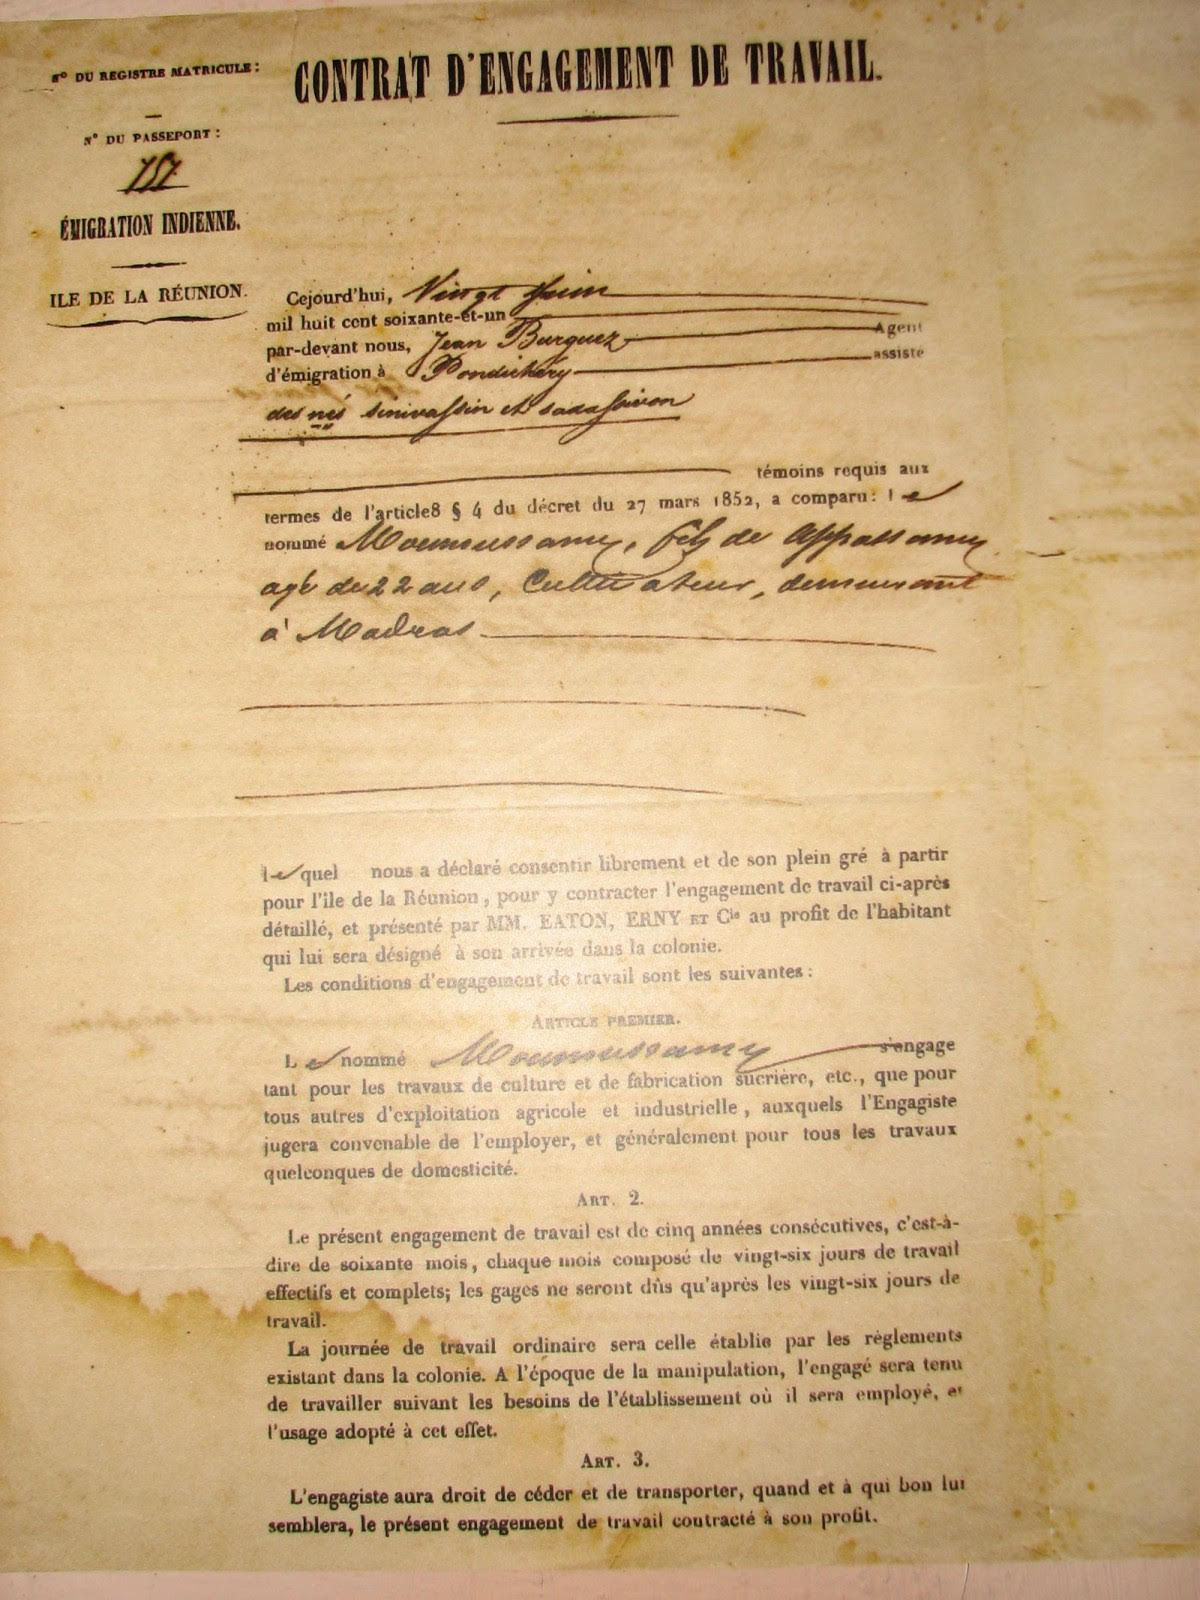 N° DU REGISTRE MATRICULE :
N° DU PASSEPORT :
757
ÉMIGRATION INDIENNE.
ILE DE LA RÉUNION.
CONTRAT D'ENGAGEMENT DE TRAVAIL.
Cejourd'hui, Vingt Juin
mil huit cent soixante-et-un
par-devant nous, Jean Burguez Agent
d'émigration à Pondichéry assisté
des nés Sinivassin et Sadassivon
témoins requis aux
termes de l'article8 § 4 du décret du 27 mars 1852, a comparu : le
nommé Mounoussamy, fils de Appassamy
agé de 22 ans, Cultivateur, demeurant
à Madras
lequel nous a déclaré consentir librement et de son plein gré à partir
pour l'ile de la Réunion, pour y contracter l'engagement de travail ci-après
détaillé, et présenté par MM. EATON, ERNY ET Cie au profit de l'habitant
qui lui sera désigné à son arrivée dans la colonie.
Les conditions d'engagement de travail sont les suivantes :
ARTICLE PREMIER.
Le nommé Mounoussamy s'engage
tant pour les travaux de culture et de fabrication sucrière, etc., que pour
tous autres d'exploitation agricole et industrielle, auxquels l'Engagiste
jugera convenable de l'employer, et généralement pour tous les travaux
quelconques de domesticité.
ART. 2.
Le présent engagement de travail est de cinq années consécutives, c'est-à-
dire de soixante mois, chaque mois composé de vingt-six jours de travail
effectifs et complets; les gages ne seront dûs qu'après les vingt-six jours de
travail.
La journée de travail ordinaire sera celle établie par les règlements
existant dans la colonie. A l'époque de la manipulation, l'engagé sera tenu
de travailler suivant les besoins de l'établissement où il sera employé, et
l'usage adopté à cet effet.
ART. 3.
L'engagiste aura droit de céder et de transporter, quand et à qui bon lui
semblera, le présent engagement de travail contracté à son profit.